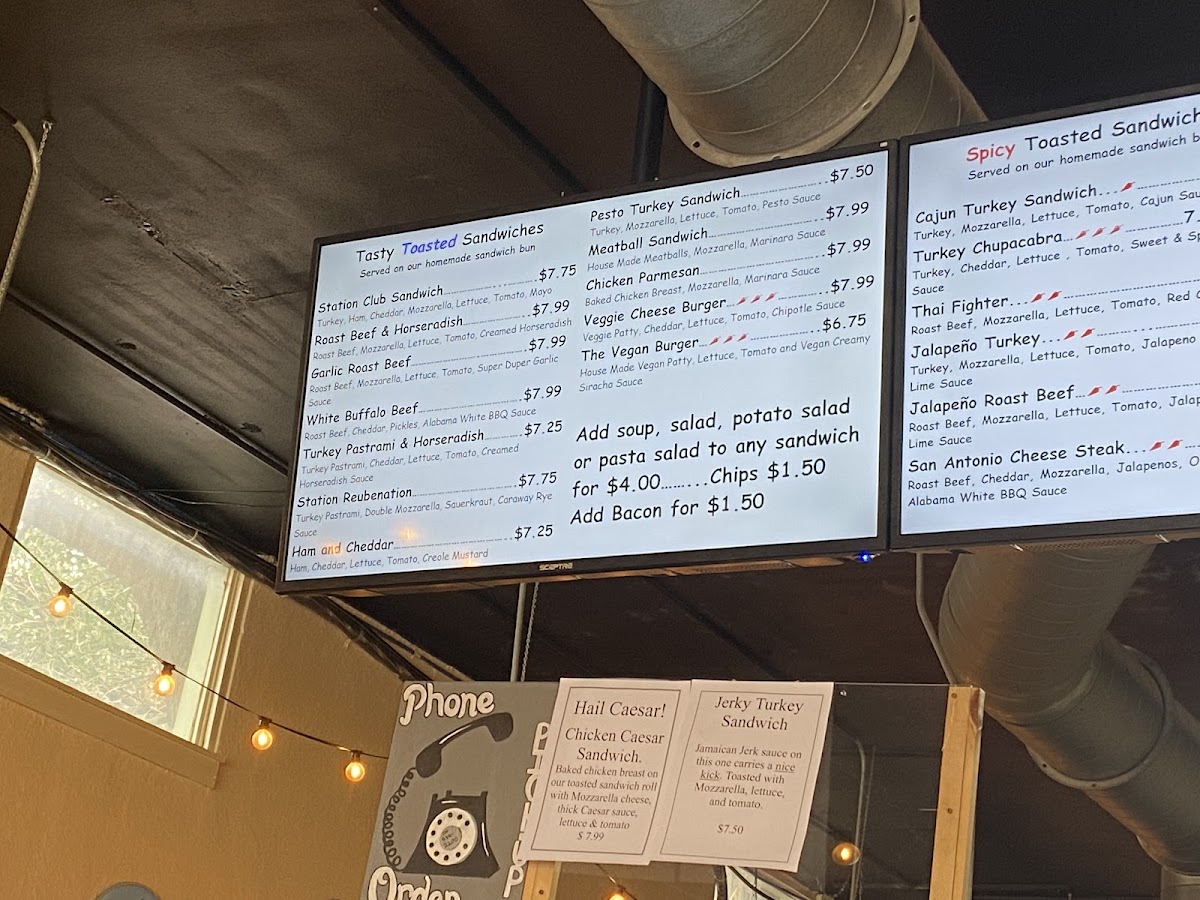 Tasty Toasted Sandwiches
Served on our homemade sandwich bun
Station Club Sandwich..............................$7.75
Turkey, Ham, Cheddar, Mozzarella, Lettuce, Tomato, Mayo
Roast Beef & Horseradish......................$7.99
Roast Beef, Mozzarella, Lettuce, Tomato, Creamed Horseradish
Garlic Roast Beef..............................$7.99
Roast Beef, Mozzarella, Lettuce, Tomato, Super Duper Garlic
Sauce
White Buffalo Beef..............................$7.99
Roast Beef, Cheddar, Pickles, Alabama White BBQ Sauce
Turkey Pastrami & Horseradish............$7.25
Turkey Pastrami, Cheddar, Lettuce, Tomato, Creamed
Horseradish Sauce
Station Reubenation..............................$7.75
Turkey Pastrami, Double Mozzarella, Sauerkraut, Caraway Rye
Sauce
Ham and Cheddar..............................$7.25
Ham, Cheddar, Lettuce, Tomato, Creole Mustard
Pesto Turkey Sandwich......................$7.50
Turkey, Mozzarella, Lettuce, Tomato, Pesto Sauce
Meatball Sandwich..............................$7.99
House Made Meatballs, Mozzarella, Marinara Sauce
Chicken Parmesan..............................$7.99
Baked Chicken Breast, Mozzarella, Marinara Sauce
Veggie Cheese Burger..................$7.99
Veggie Patty, Cheddar, Lettuce, Tomato, Chipotle Sauce
The Vegan Burger......................$6.75
House Made Vegan Patty, Lettuce, Tomato and Vegan Creamy
Siracha Sauce
Add soup, salad, potato salad
or pasta salad to any sandwich
for $4.00.........Chips $1.50
Add Bacon for $1.50
SCEPTRE
Spicy Toasted Sandwich
Served on our homemade sandwich b
Cajun Turkey Sandwich...
Turkey, Mozzarella, Lettuce, Tomato, Cajun Sau
Turkey Chupacabra...............7.
Turkey, Cheddar, Lettuce , Tomato, Sweet & Sp
Sauce
Thai Fighter...
Roast Beef, Mozzarella, Lettuce, Tomato, Red C
Jalapeño Turkey...
Turkey, Mozzarella, Lettuce, Tomato, Jalapeno
Lime Sauce
Jalapeño Roast Beef...
Roast Beef, Mozzarella, Lettuce, Tomato, Jalap
Lime Sauce
San Antonio Cheese Steak...
Roast Beef, Cheddar, Mozzarella, Jalapenos, O
Alabama White BBQ Sauce
Phone
Order
Hail Caesar!
Chicken Caesar
Sandwich.
Baked chicken breast on
our toasted sandwich roll
with Mozzarella cheese,
thick Caesar sauce,
lettuce & tomato
$ 7.99
Jerky Turkey
Sandwich
Jamaican Jerk sauce on
this one carries a nice
kick. Toasted with
Mozzarella, lettuce,
and tomato.
$7.50